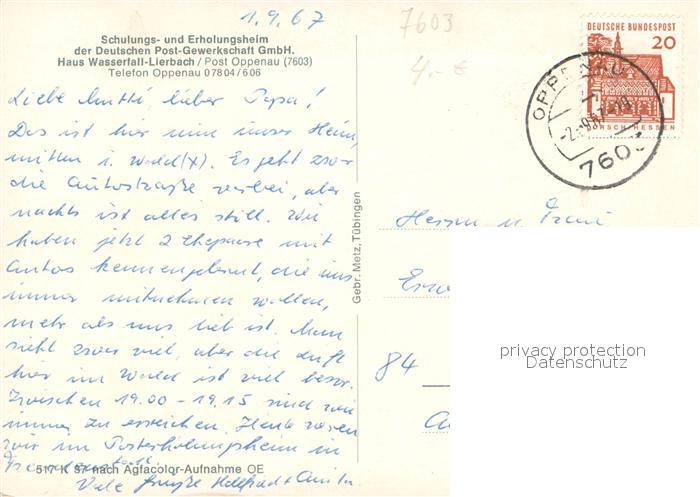 1.9.67
7603
4.- €
Schulungs- und Erholungsheim
der Deutschen Post-Gewerkschaft GmbH.
Haus Wasserfall-Lierbach / Post Oppenau (7603)
Telefon Oppenau 07804/606
DEUTSCHE BUNDESPOST
20
LORSCH HESSEN
OPPENAU
-2.-9.67
7603
Liebe Mutti, lieber Papa!
Das ist hier nun unser Heim,
mitten i. Wald (x). Es geht zwar
die Autostraße vorbei, aber
nachts ist alles still. Wir
haben jetzt 2 Ehepaare mit
Autos kennengelernt, die uns
immer mitnehmen wollen,
mehr als uns lieb ist. Man
sieht zwar viel, aber die Luft
hier im Wald ist viel besser.
Zwischen 19.00 - 19.15 sind wir
immer zu erreichen. Heute waren
wir im Posterholungsheim in
Viele Grüße
517 K 87 nach Agfacolor-Aufnahme OE
Gebr. Metz, Tübingen
Herrn u. Frau
84
privacy protection
Datenschutz